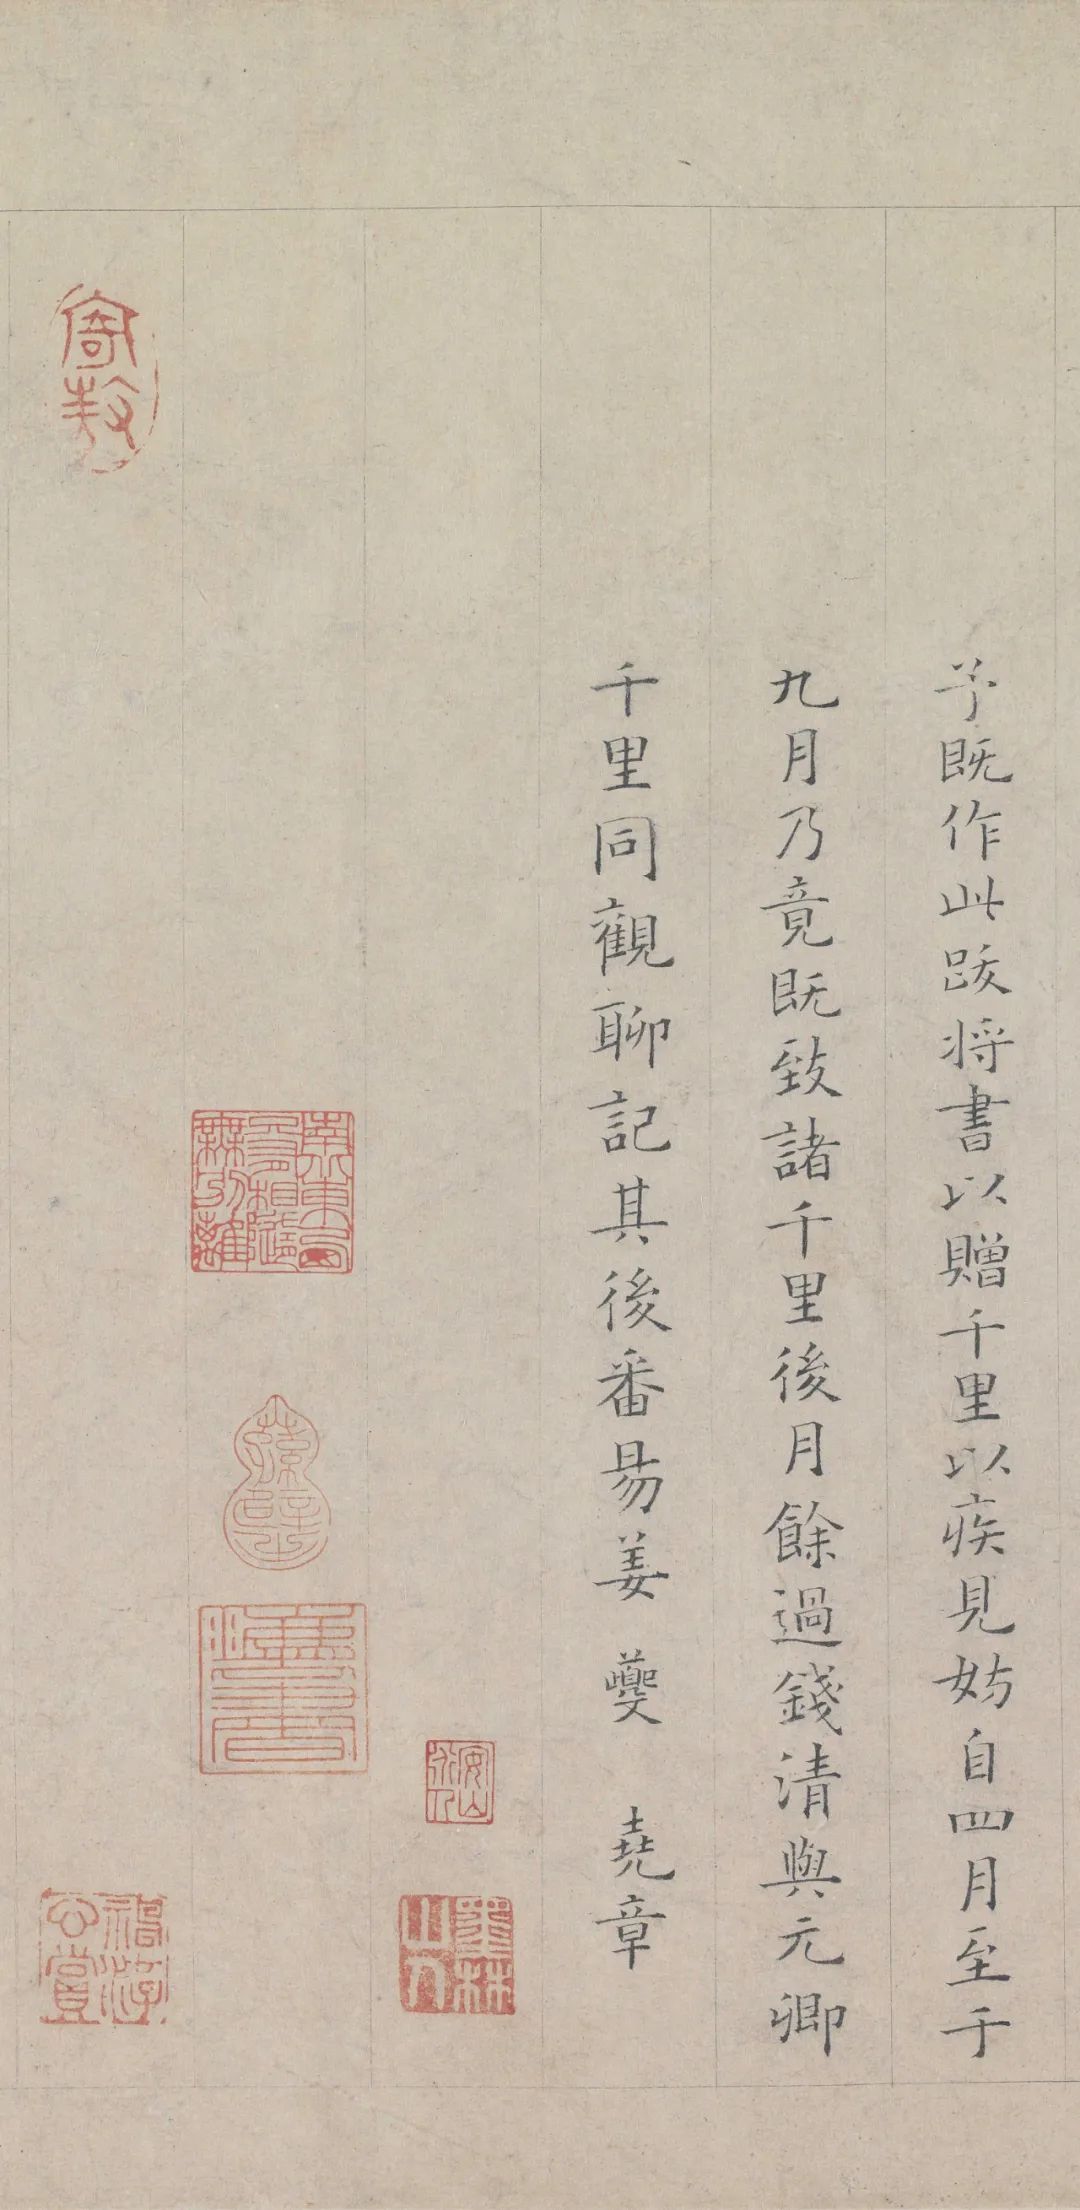 予既作此跋将書以贈千里以疾見妨自四月至于
九月乃竟既致諸千里後月餘過錢清與元卿
千里同觀聊記其後番昜姜 夔 堯章
寄敖
墨林山人